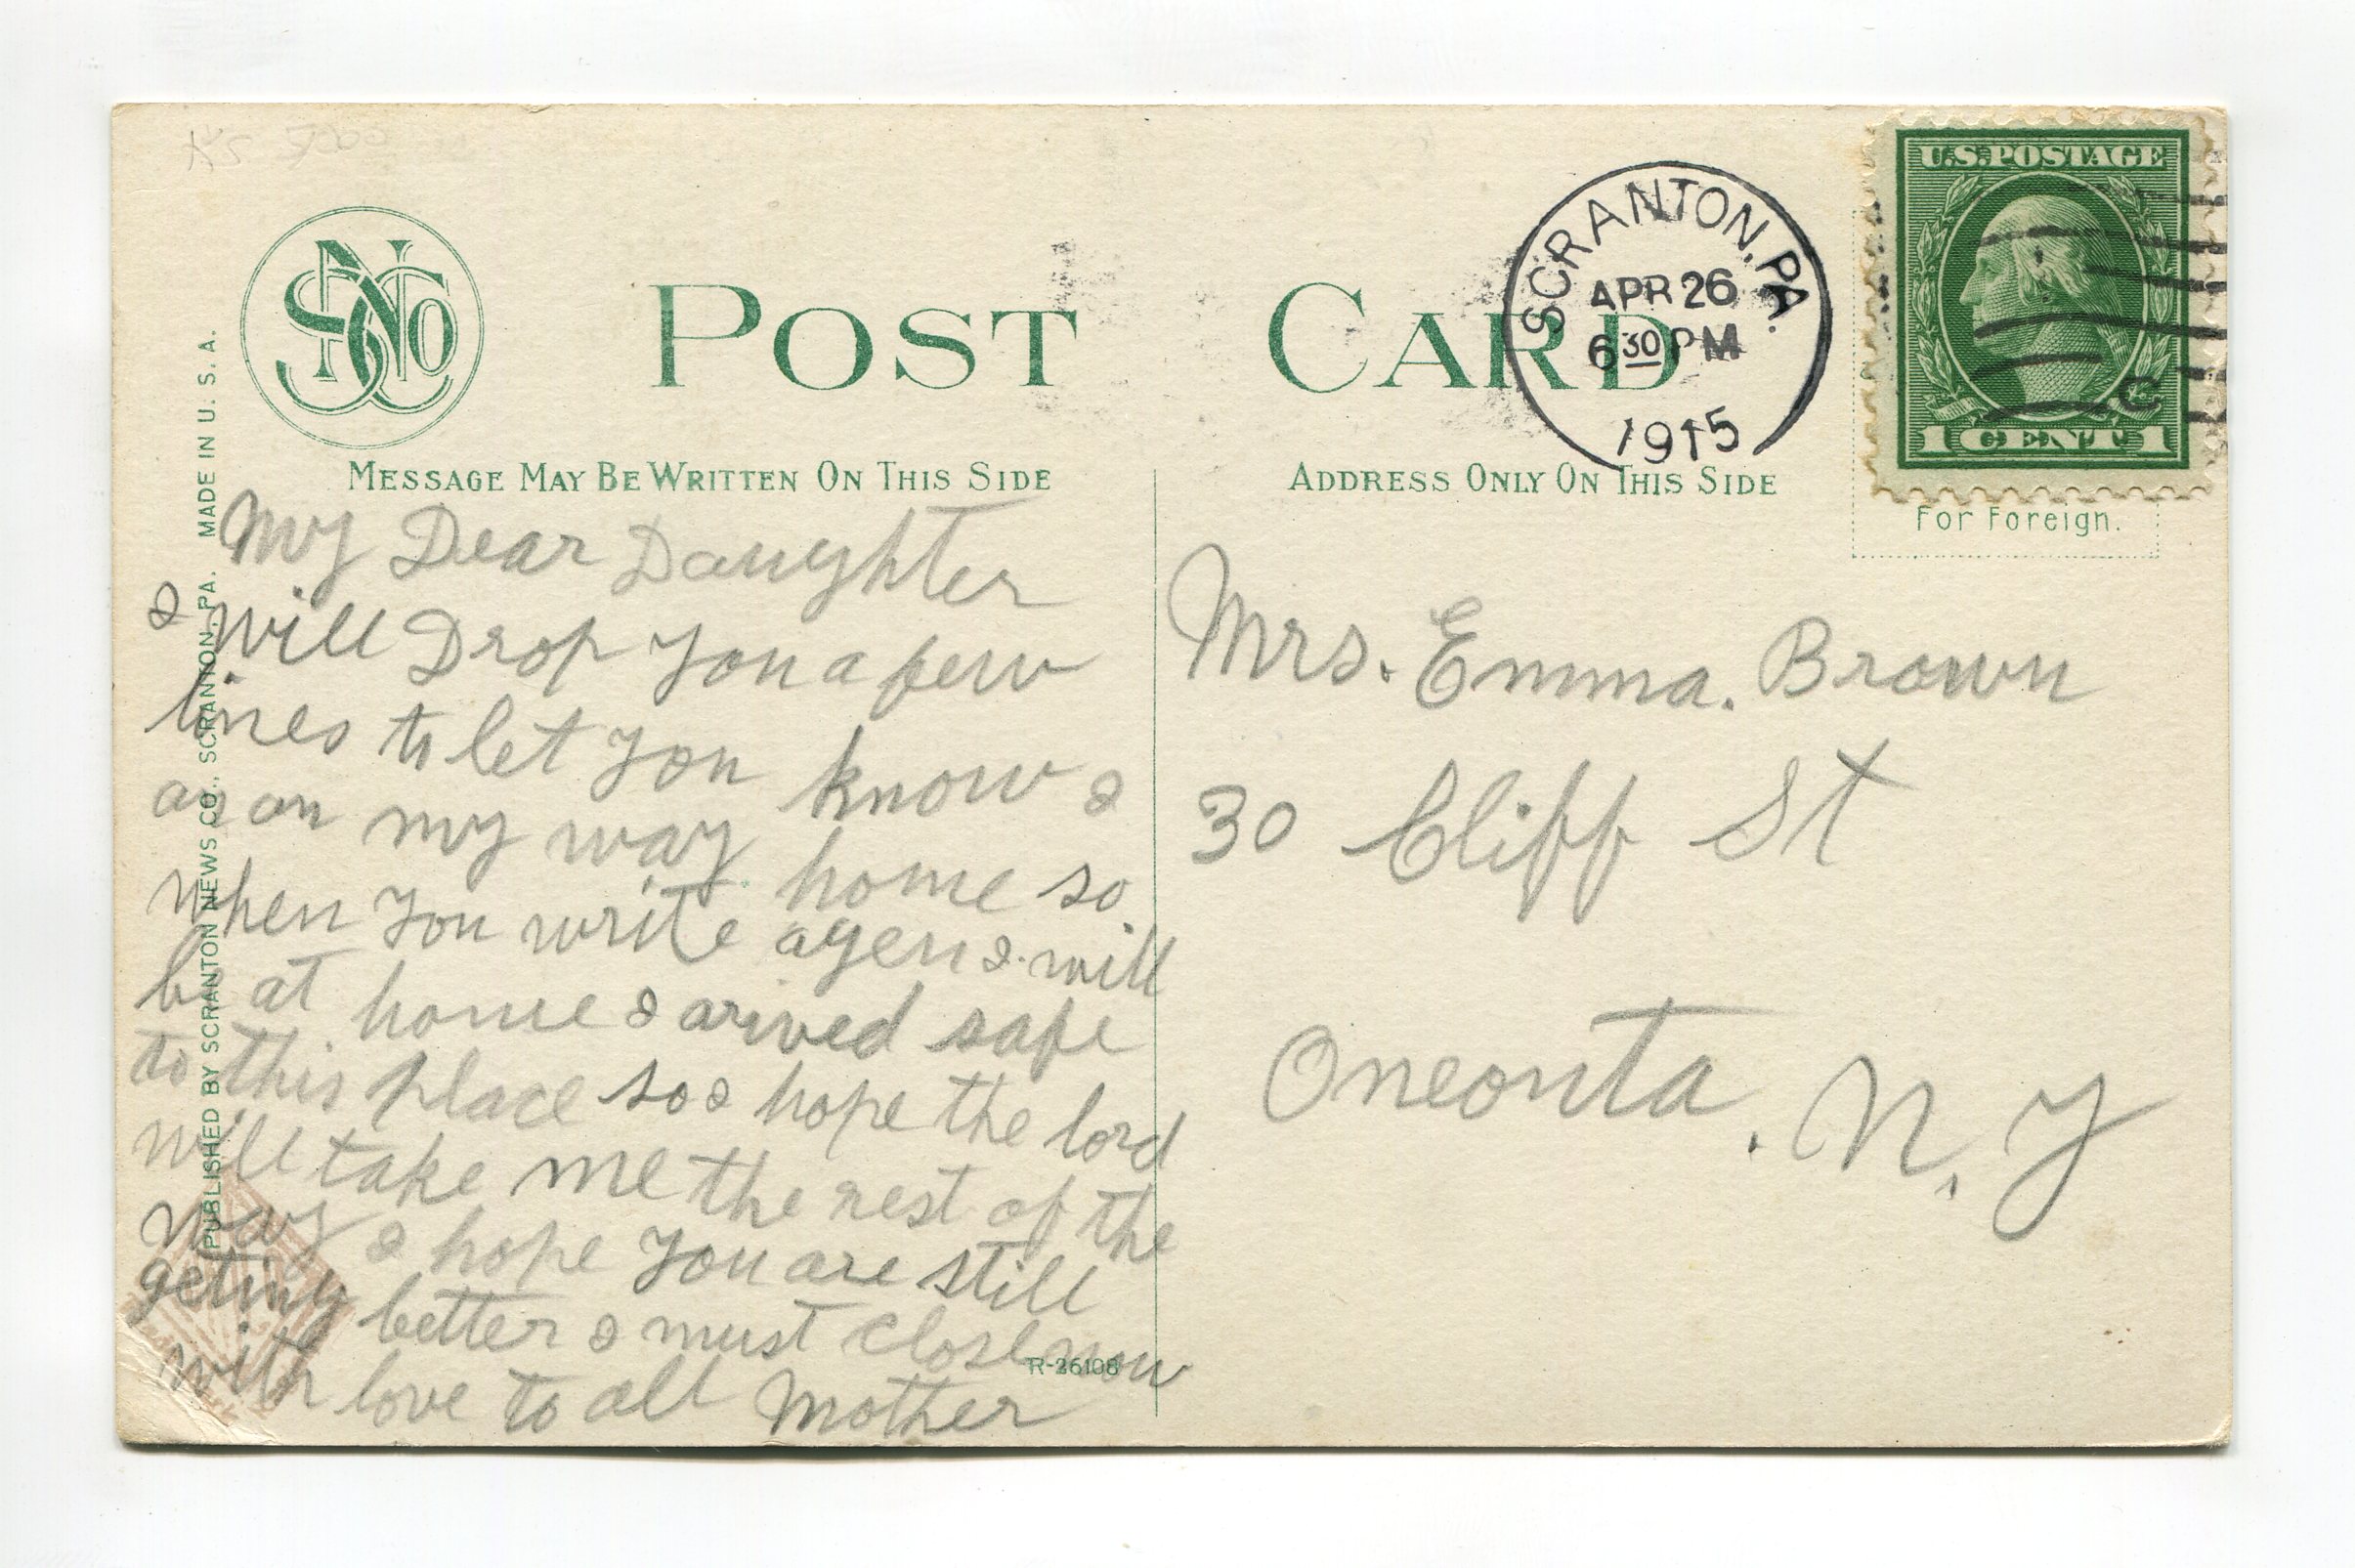 Ks
SNCo
POST CARD
SCRANTON, PA.
APR 26
6 30 PM
1915
U.S. POSTAGE
1 CENT 1
C
MESSAGE MAY BE WRITTEN ON THIS SIDE
ADDRESS ONLY ON THIS SIDE
For Foreign.
PUBLISHED BY SCRANTON NEWS CO., SCRANTON, PA. MADE IN U. S. A.
My Dear Daughter
I will Drop you a few
lines to let you know I
on my way home so
when you write agen I will
be at home I arived safe
to this place so I hope the lord
will take me the rest of the
way I hope you are still
geting better I must close now
with love to all Mother
R-26108
Mrs. Emma. Brown
30 Cliff St
Oneonta. N. Y